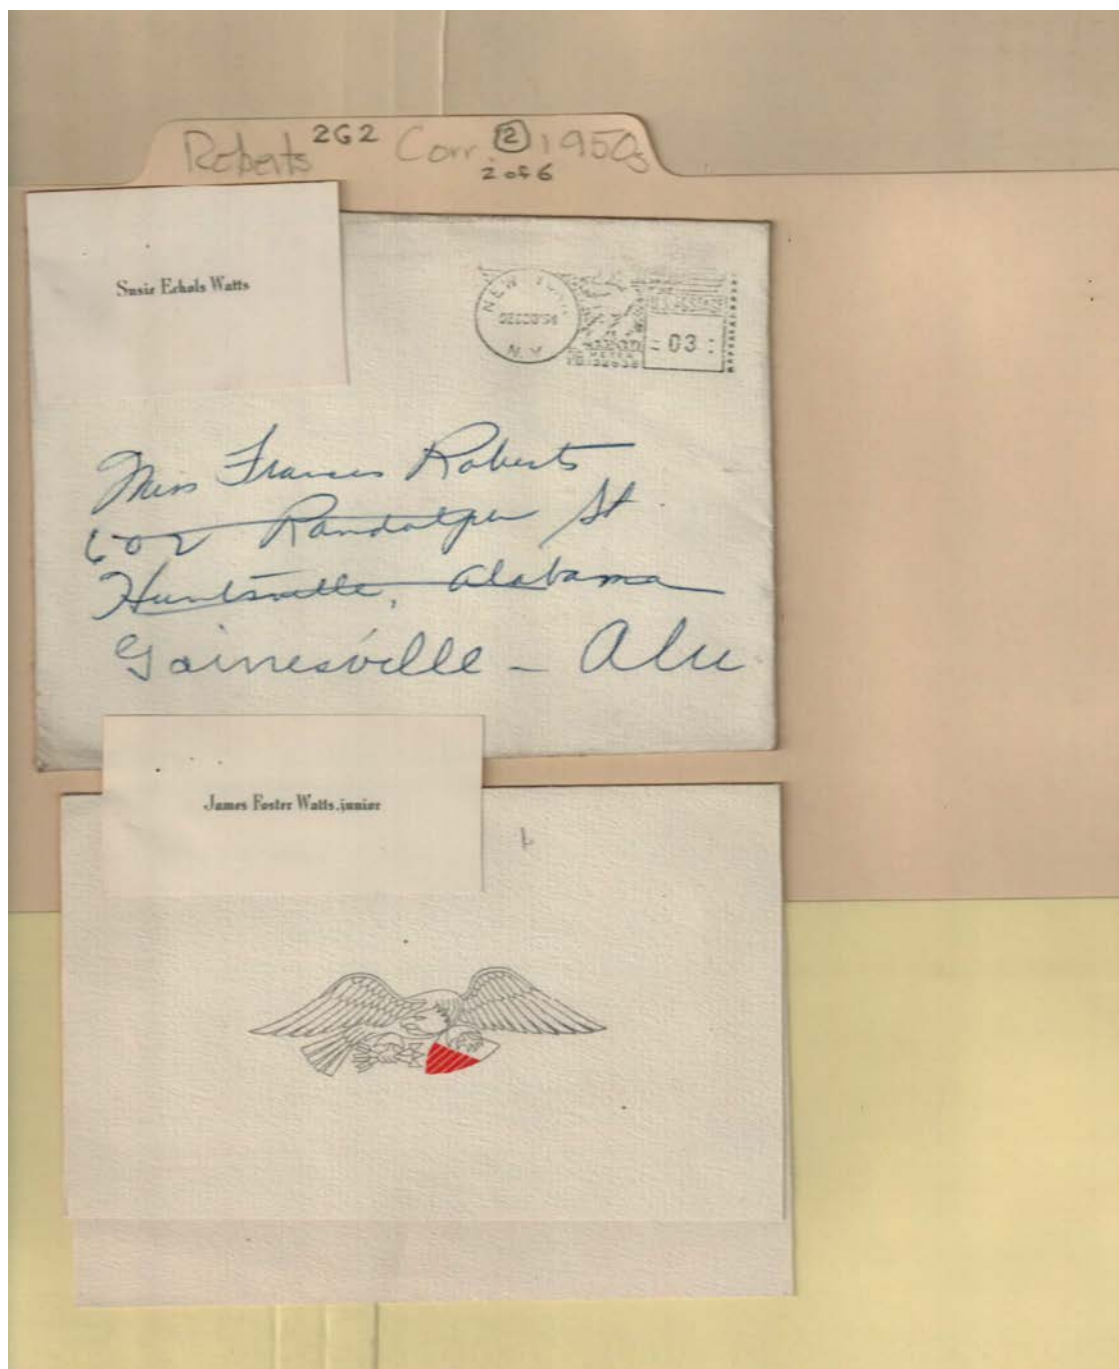 Roberts 2G2 Corr. ② 1950s
2 of 6
Susie Echols Watts
NEW YORK
N.Y.
U.S. POSTAGE
03
METER
Miss Frances Roberts
602 Randolph St.
Huntsville, Alabama
Gainesville - Ala
James Foster Watts, junior